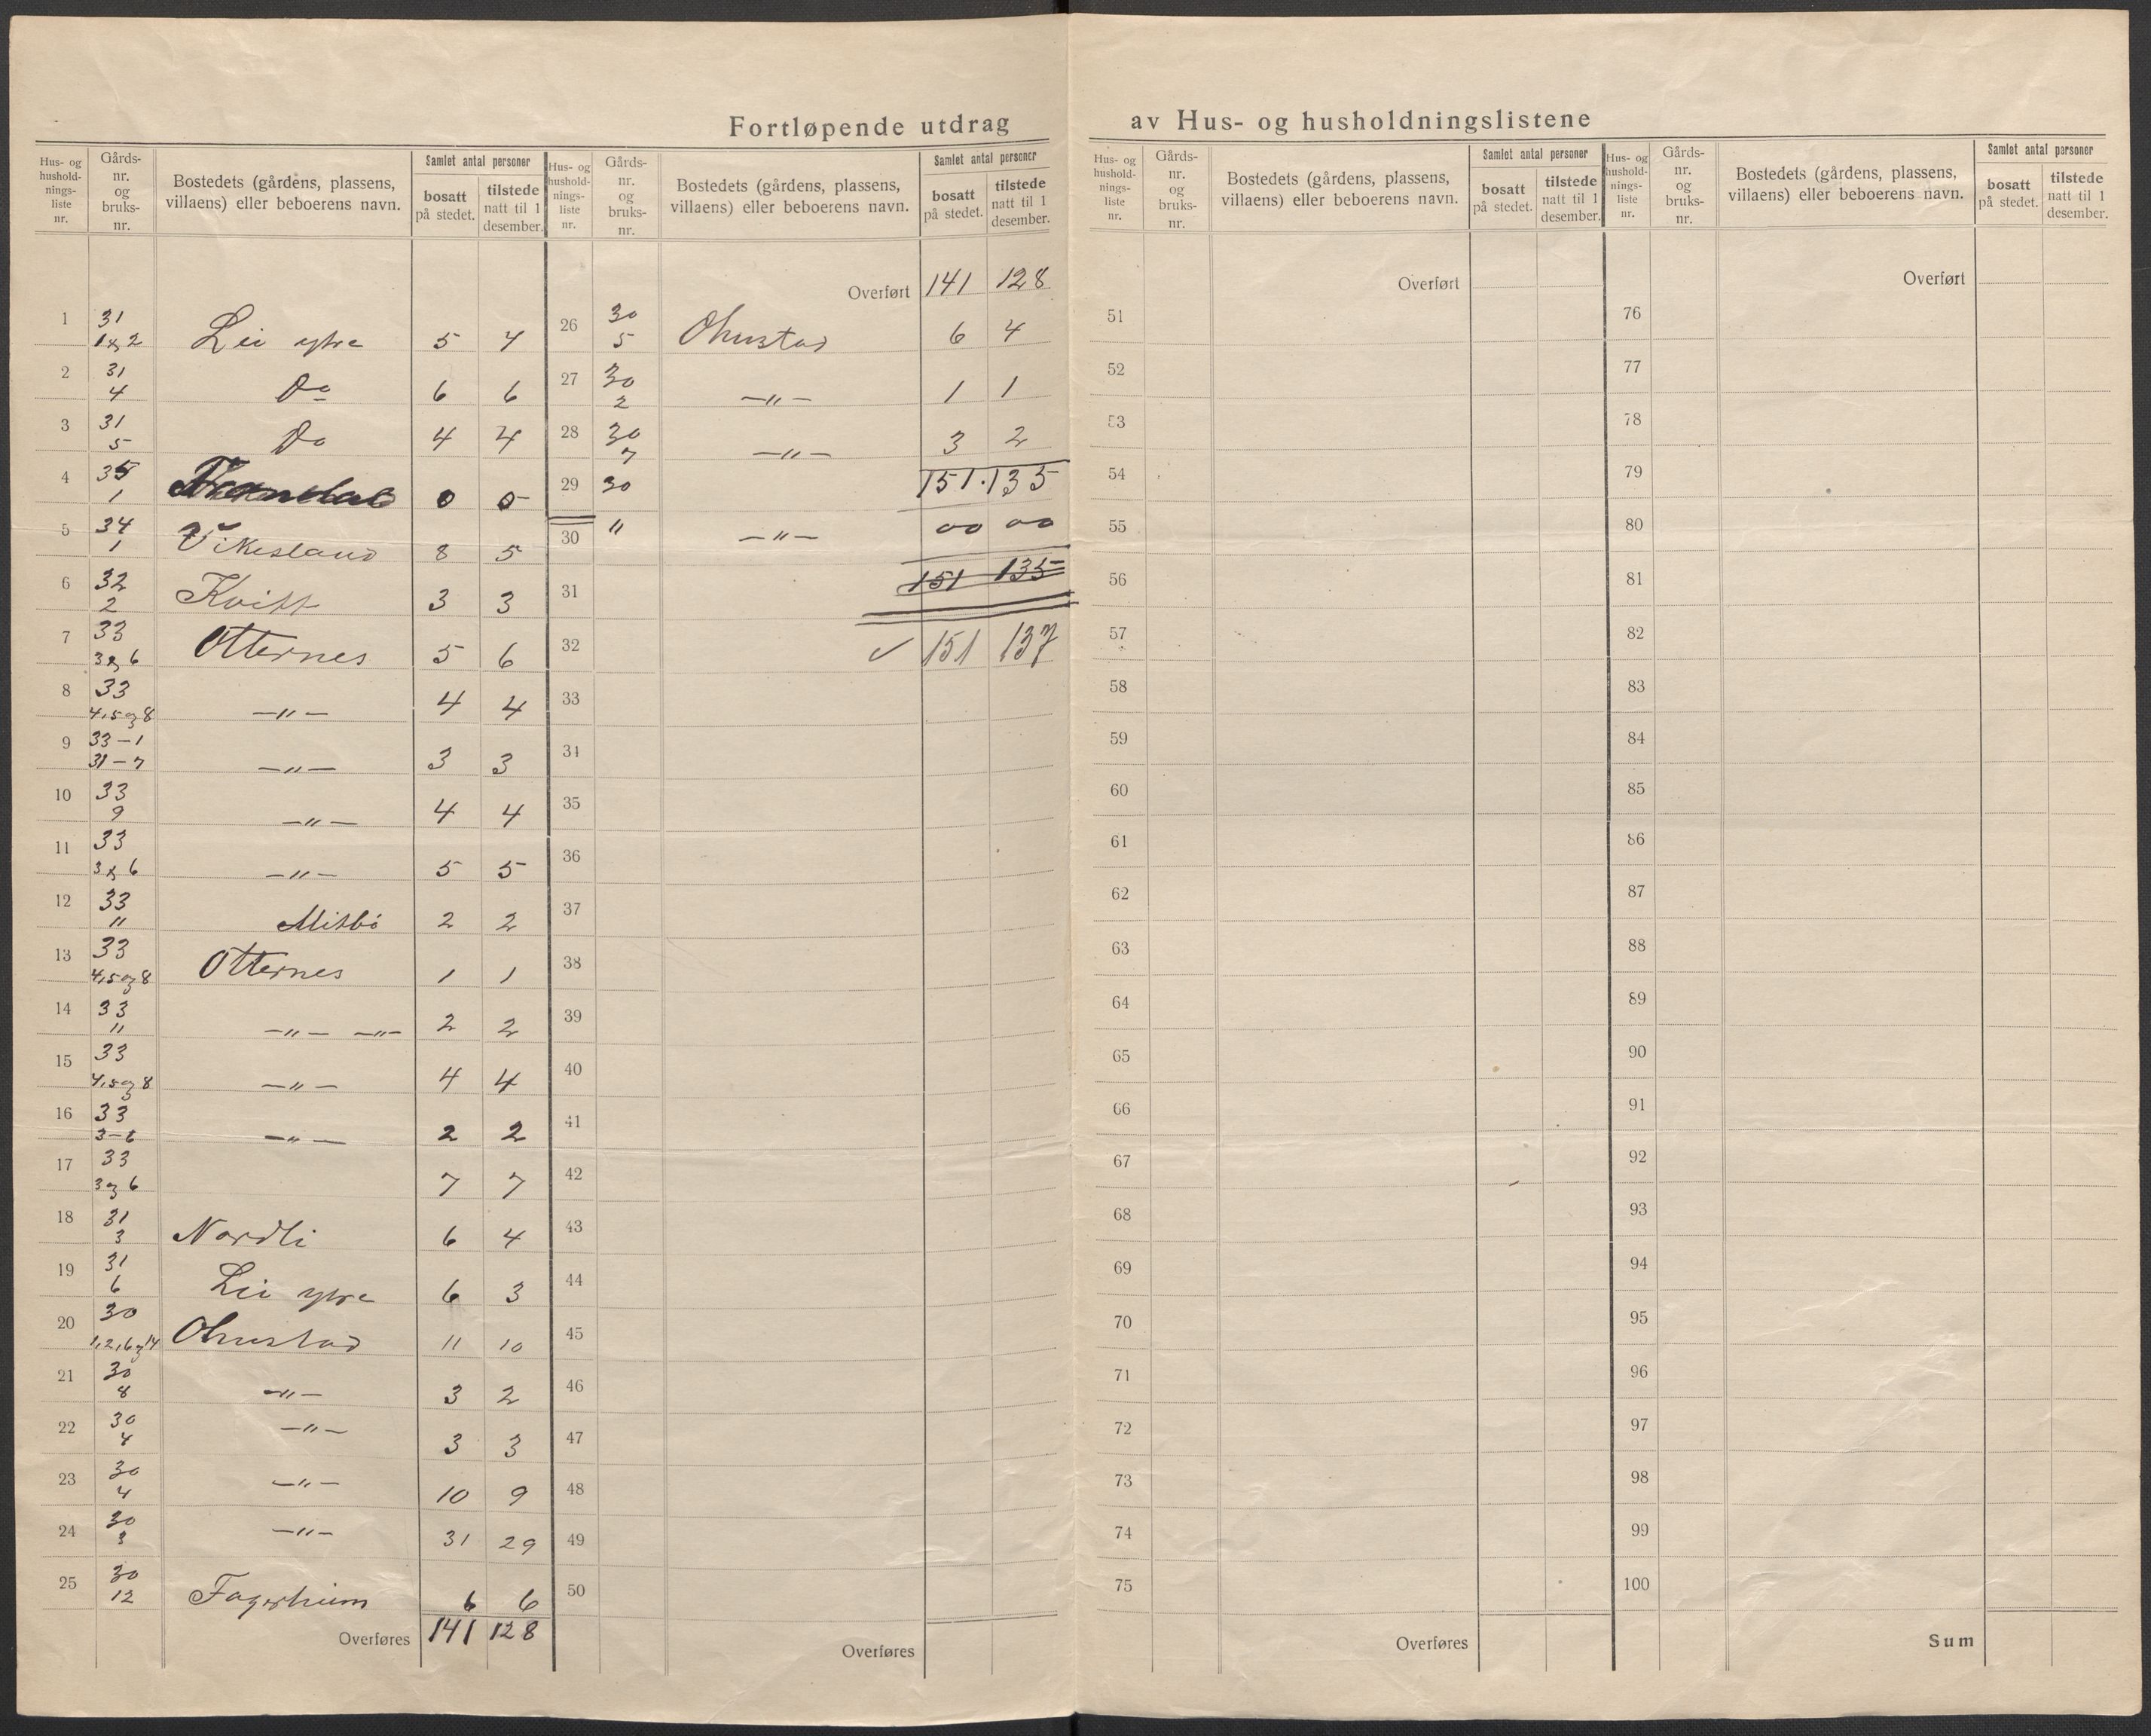 Fortløpende utdrag av Hus- og husholdningslistene
Hus- og hushold-nings-liste nr. Gårds-nr. og bruks-nr. Bostedets (gårdens, plassens, villaens) eller beboerens navn. Samlet antal personer bosatt på stedet. tilstede natt til 1 desember.
1 31 1 & 2 Lii ytre 5 4
2 31 4 Do 6 6
3 31 5 Do 4 4
4 35 1 0 0
5 34 1 Vikesland 8 5
6 32 2 Kvitt 3 3
7 33 3 & 6 Otternes 5 6
8 33 4,5 og 8 —"— 4 4
9 33-1 31-7 —"— 3 3
10 33 9 —"— 4 4
11 33 3 & 6 —"— 5 5
12 33 " Mitbö 2 2
13 33 4,5 og 8 Otternes 1 1
14 33 " —"— —"— 2 2
15 33 4,5 og 8 —"— 4 4
16 33 3-6 —"— 2 2
17 33 3 og 6 7 7
18 31 3 Nordli 6 4
19 31 6 Lii ytre 6 3
20 30 1,2,6 og 14 Ohnstad 11 10
21 30 8 —"— 3 2
22 30 4 —"— 3 3
23 30 4 —"— 10 9
24 30 3 —"— 31 29
25 30 12 Fagerheim 6 6
Overføres 141 128
Hus- og hushold-nings-liste nr. Gårds-nr. og bruks-nr. Bostedets (gårdens, plassens, villaens) eller beboerens navn. Samlet antal personer bosatt på stedet. tilstede natt til 1 desember.
Overført 141 128
26 30 5 Ohnstad 6 4
27 30 2 —"— 1 1
28 30 7 —"— 3 2
29 30 151. 135
30 " —"— 00 00
31 151 135
32 ✓ 151 137
33
34
35
36
37
38
39
40
41
42
43
44
45
46
47
48
49
50
Overføres
Hus- og hushold-nings-liste nr. Gårds-nr. og bruks-nr. Bostedets (gårdens, plassens, villaens) eller beboerens navn. Samlet antal personer bosatt på stedet. tilstede natt til 1 desember.
Overført
51
52
53
54
55
56
57
58
59
60
61
62
63
64
65
66
67
68
69
70
71
72
73
74
75
Overføres
Hus- og hushold-nings-liste nr. Gårds-nr. og bruks-nr. Bostedets (gårdens, plassens, villaens) eller beboerens navn. Samlet antal personer bosatt på stedet. tilstede natt til 1 desember.
Overført
76
77
78
79
80
81
82
83
84
85
86
87
88
89
90
91
92
93
94
95
96
97
98
99
100
Sum